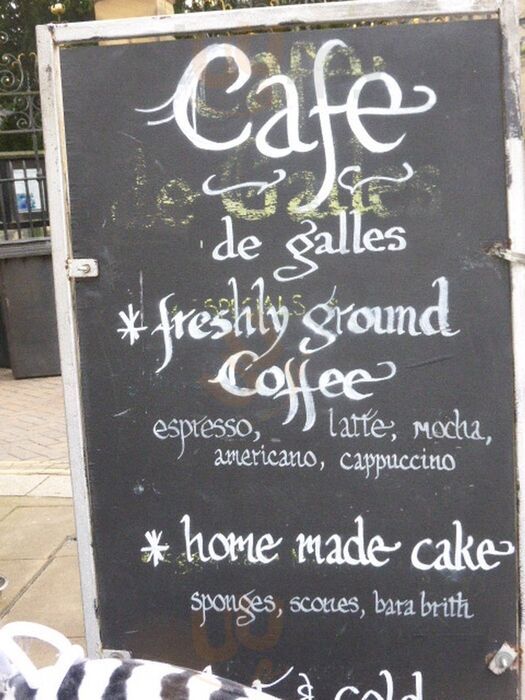 Cafe
de galles
* freshly ground
Coffee
espresso, latte, mocha,
americano, cappuccino
* home made cake
sponges, scones, bara brith
& cold